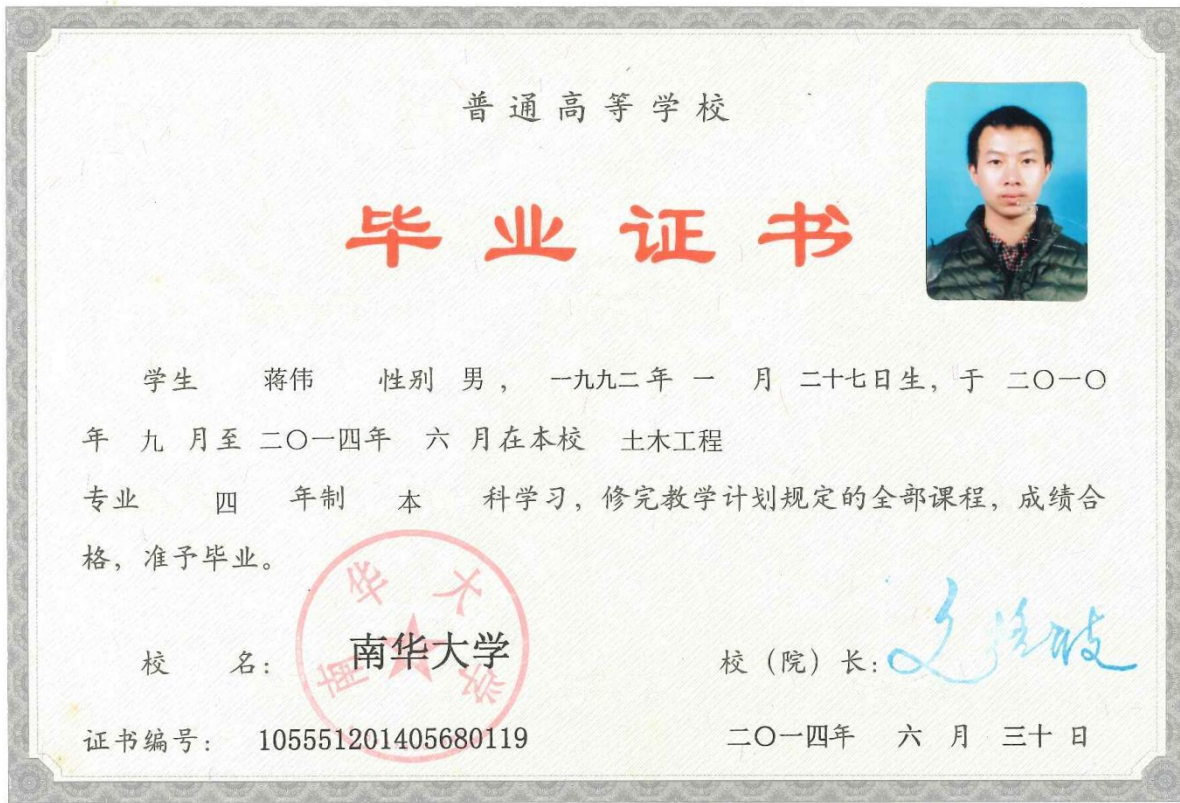 普通高等学校
毕业证书
学生 蒋伟 性别 男， 一九九二年 一 月 二十七日生，于 二〇一〇
年 九 月至 二〇一四年 六 月在本校 土木工程
专业 四 年制 本 科学习，修完教学计划规定的全部课程，成绩合
格，准予毕业。
南华大学
校 名： 南华大学 校（院）长：
证书编号： 105551201405680119 二〇一四年 六 月 三十 日